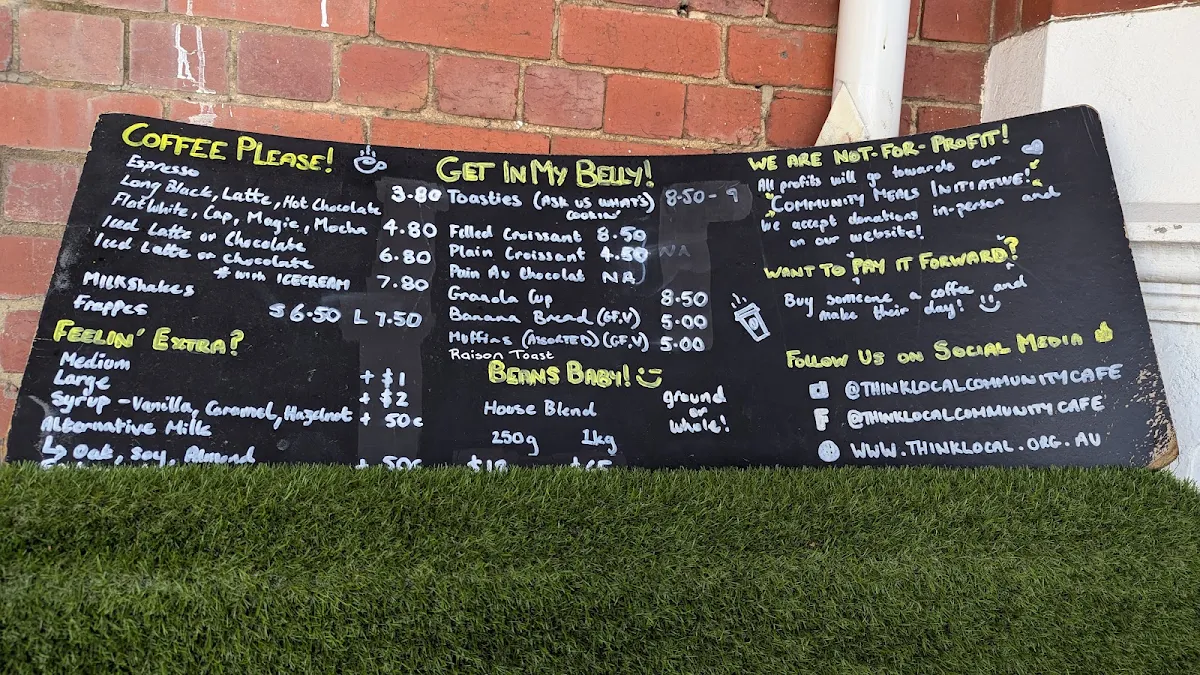 COFFEE PLEASE!
Espresso 3.80
Long Black, Latte, Hot Chocolate
Flat White, Cap, Magic, Mocha 4.80
Iced Latte or Chocolate 6.80
Iced Latte or chocolate
* with ICECREAM 7.80
Milkshakes
Frappes S 6.50 L 7.50
FEELIN' EXTRA?
Medium + $1
Large + $2
Syrup - Vanilla, Caramel, Hazelnut + 50c
Alternative Milk
↳ Oat, Soy, Almond + 50c
GET IN MY BELLY!
Toasties (ASK US WHAT'S COOKIN') 8.50 - 9
Filled Croissant 8.50
Plain Croissant 4.50 NA
Pain Au Chocolat NA
Granola Cup 8.50
Banana Bread (GF,V) 5.00
Muffins (ASSORTED) (GF,V) 5.00
Raison Toast
BEANS BABY!
House Blend
250g 1kg
ground
or
whole!
WE ARE NOT-FOR-PROFIT!
All profits will go towards our
"COMMUNITY MEALS INITIATIVE!"
We accept donations in-person and
on our website!
WANT TO PAY IT FORWARD?
Buy someone a coffee and
make their day!
FOLLOW US ON SOCIAL MEDIA
@THINKLOCALCOMMUNITYCAFE
F @THINKLOCALCOMMUNITYCAFE
WWW.THINKLOCAL.ORG.AU